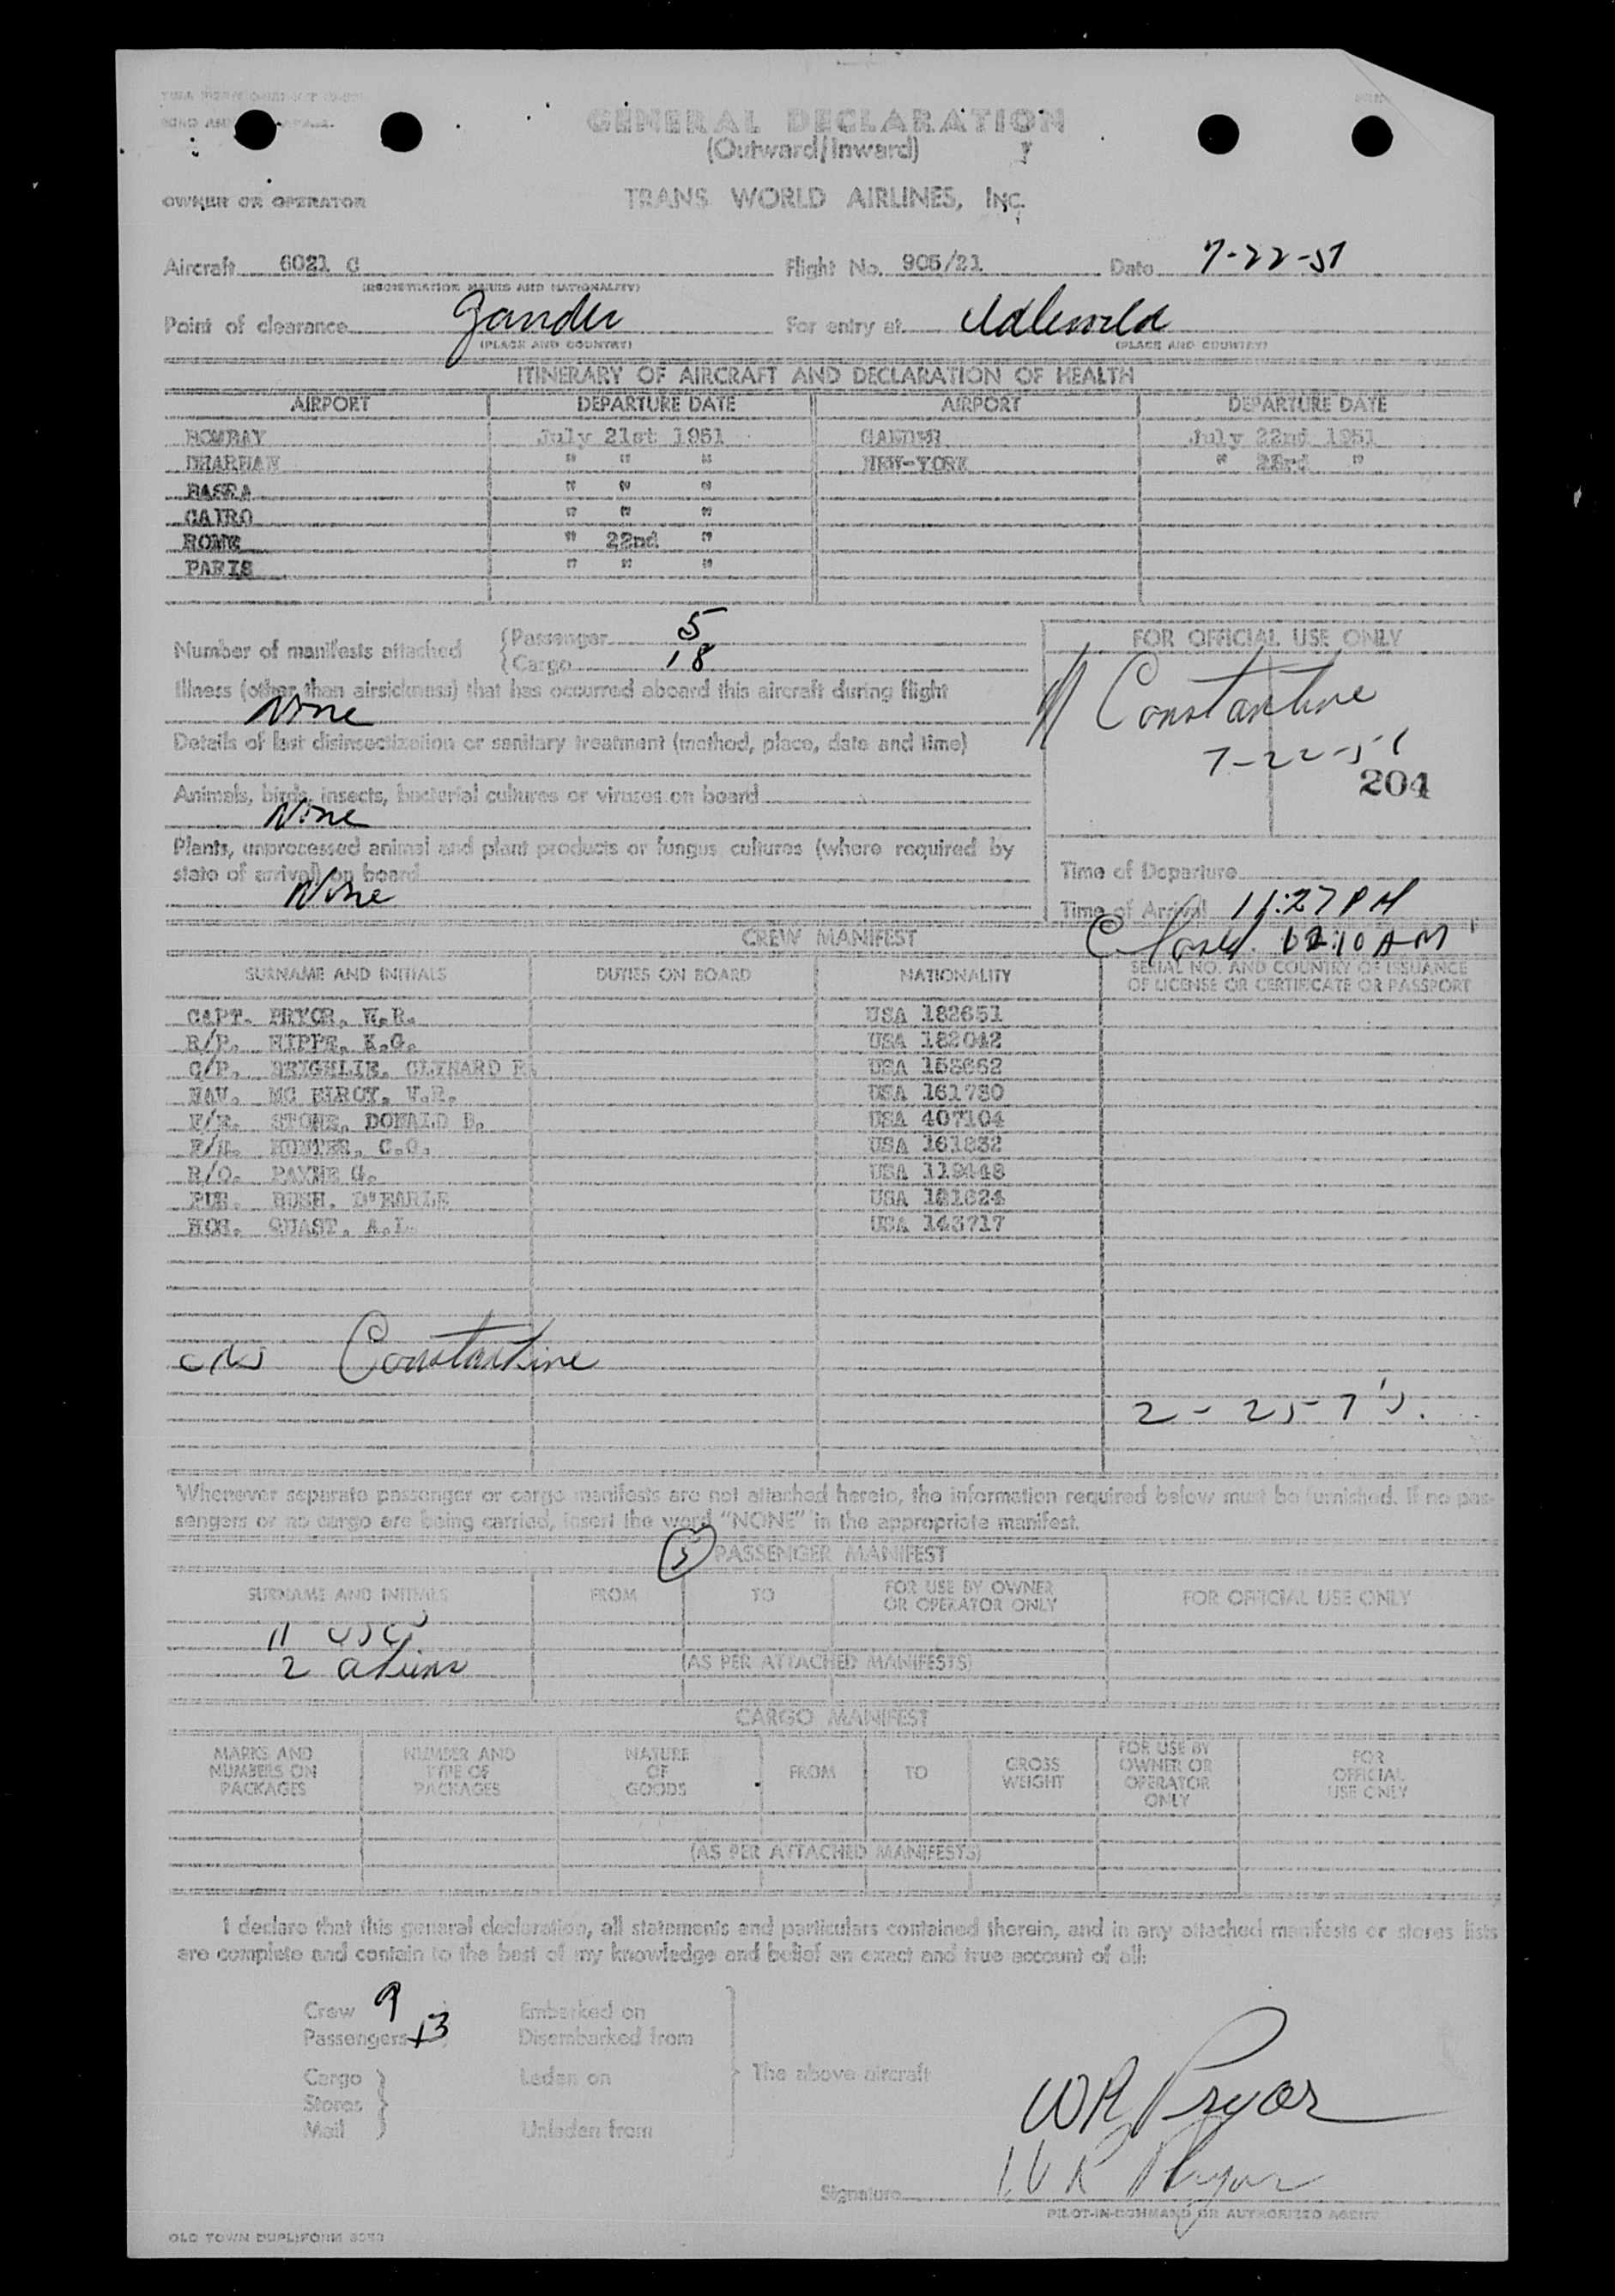 GENERAL DECLARATION
(Outward/Inward)
OWNER OR OPERATOR TRANS WORLD AIRLINES, INC.
Aircraft 6021 C Flight No. 905/21 Date 7-22-51
(REGISTRATION MARKS AND NATIONALITY)
Point of clearance Gander For entry at Idlewild
(PLACE AND COUNTRY) (PLACE AND COUNTRY)
ITINERARY OF AIRCRAFT AND DECLARATION OF HEALTH
AIRPORT DEPARTURE DATE AIRPORT DEPARTURE DATE
BOMBAY July 21st 1951 GANDER July 22nd 1951
DHARHAN " " " NEW-YORK " 23rd "
BASRA " " "
CAIRO " " "
ROME " 22nd "
PARIS " " "
Number of manifests attached { Passenger 5
{ Cargo 18
FOR OFFICIAL USE ONLY
Illness (other than airsickness) that has occurred aboard this aircraft during flight
None
Constantine
7-22-51
204
Details of last disinsectization or sanitary treatment (method, place, date and time)
Animals, birds, insects, bacterial cultures or viruses on board
None
Plants, unprocessed animal and plant products or fungus cultures (where required by
state of arrival) on board
None
Time of Departure
Time of Arrival 11:27 PM
12:10 AM
CREW MANIFEST
SURNAME AND INITIALS DUTIES ON BOARD NATIONALITY SERIAL NO. AND COUNTRY OF ISSUANCE
OF LICENSE OR CERTIFICATE OR PASSPORT
CAPT. PRYOR, W.R. USA 182651
R/P. HIPPE, K.G. USA 182042
C/P. USA
NAV. MC ELROY, USA 161780
F/E. STONE, DONALD D. USA 407104
F/E. HUNTER, C.O. USA 161832
R/O. PAYNE G. USA
PUR. BUSH, D'EARLE USA 181624
HOS. QUAST, A.L. USA 143717
Constantine
Whenever separate passenger or cargo manifests are not attached hereto, the information required below must be furnished. If no pas-
sengers or no cargo are being carried, insert the word "NONE" in the appropriate manifest.
5 PASSENGER MANIFEST
SURNAME AND INITIALS FROM TO FOR USE BY OWNER
OR OPERATOR ONLY FOR OFFICIAL USE ONLY
11 USC
2 aliens (AS PER ATTACHED MANIFESTS)
CARGO MANIFEST
MARKS AND
NUMBERS ON
PACKAGES
NUMBER AND
TYPE OF
PACKAGES
NATURE
OF
GOODS
FROM
TO
GROSS
WEIGHT
FOR USE BY
OWNER OR
OPERATOR
ONLY
FOR
OFFICIAL
USE ONLY
(AS PER ATTACHED MANIFESTS)
I declare that this general declaration, all statements and particulars contained therein, and in any attached manifests or stores lists
are complete and contain to the best of my knowledge and belief an exact and true account of all:
Crew 9 Embarked on
Passengers 13 Disembarked from
Cargo Laden on The above aircraft
Stores
Mail Unladen from
WR Pryor
WR Pryor
Signature
PILOT-IN-COMMAND OR AUTHORIZED AGENT
OLD TOWN DUPLIFORM